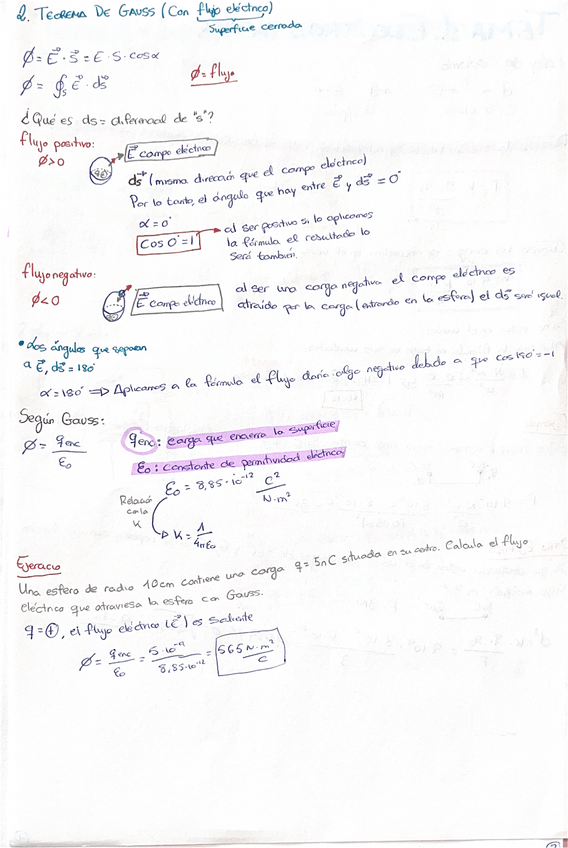 2. TEOREMA DE GAUSS (Con flujo eléctrico)
Superficie cerrada
Ø = E⃗ · S⃗ = E · S · cos α
Ø = ∮s E⃗ · ds⃗
Ø = flujo
¿Qué es ds = diferencial de "s"?
flujo positivo:
Ø > 0
E⃗ campo eléctrico
ds⃗ (misma dirección que el campo eléctrico)
Por lo tanto, el ángulo que hay entre E⃗ y ds⃗ = 0°
α = 0°
Cos 0° = 1
al ser positivo si lo aplicamos
la fórmula el resultado lo
será también.
flujo negativo:
Ø < 0
E⃗ campo eléctrico
al ser una carga negativa el campo eléctrico es
atraído por la carga (entrando en la esfera) el ds⃗ será igual.
• Los ángulos que separan
a E⃗, ds⃗ = 180°
α = 180° ⟹ Aplicamos a la fórmula el flujo daría algo negativo debido a que cos 180° = -1
Según Gauss:
Ø = qenc / ε0
qenc: carga que encierra la superficie
ε0: constante de permitividad eléctrica
ε0 = 8,85 · 10⁻¹² C² / N·m²
Relación
con la
K
K = 1 / 4πε0
Ejercicio
Una esfera de radio 10cm contiene una carga q = 5nC situada en su centro. Calcula el flujo
eléctrico que atraviesa la esfera con Gauss.
q = ⊕, el flujo eléctrico (E⃗) es saliente
Ø = qenc / ε0 = 5·10⁻⁹ / 8,85·10⁻¹² = 565 N·m² / C